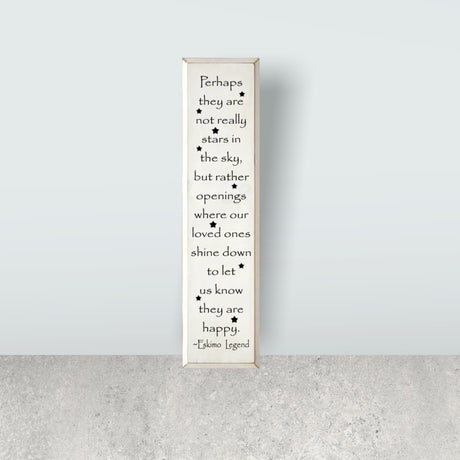 Perhaps
they are
not really
stars in
the sky,
but rather
openings
where our
loved ones
shine down
to let
us know
they are
happy.
~Eskimo Legend